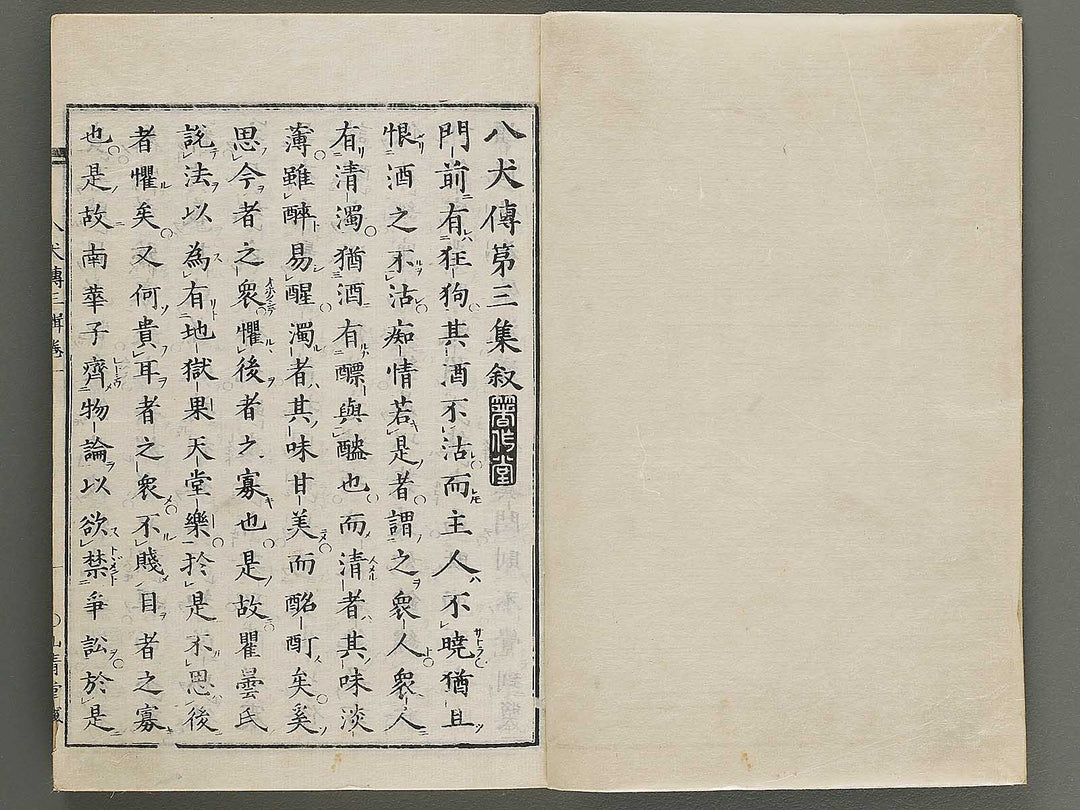 八犬傳第三集叙 著作堂
門前有狂狗其酒不沽而主人不曉猶且
恨酒之不沽痴情若是者謂之衆人衆人
有清濁猶酒有醥與醠也而清者其味淡
薄雖醉易醒濁者其味甘美而酩酊矣奚
思今者之衆懼後者之寡也是故瞿曇氏
說法以為有地獄果天堂樂於是不思後
者懼矣又何貴耳者之衆不賤目者之寡
也是故南華子齊物論以欲禁爭訟於是
八犬傳三輯卷一